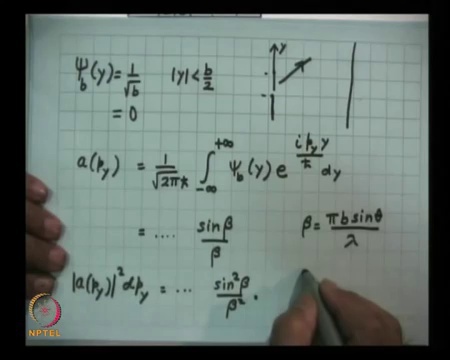 Ψ_b(y) = 1/√b |y| < b/2
= 0
y
a(p_y) = 1/√(2πħ) ∫_{-∞}^{+∞} Ψ_b(y) e^{i p_y y/ħ} dy
= .... sinβ/β β = πb sinθ/λ
|a(p_y)|² dp_y = ... sin²β/β² .
NPTEL